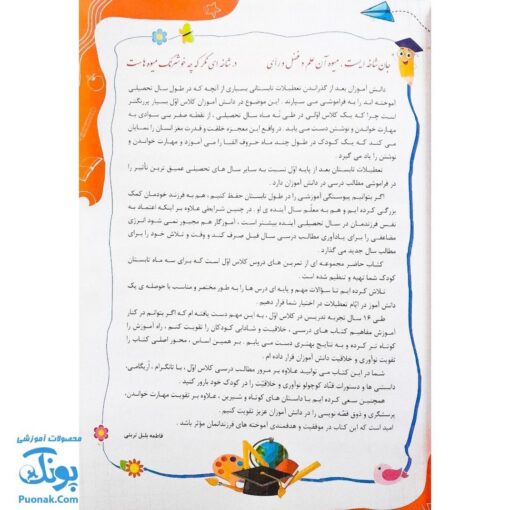 جان شانه ایست، میوه آن علم و فضل و رای در شانه ای نگر که چه خوشرنگ میوه هاست
دانش آموزان بعد از گذراندن تعطیلات تابستانی بسیاری از آنچه که در طول سال تحصیلی
آموخته اند را به فراموشی می سپارند . این موضوع در دانش آموزان کلاس اوّل بسیار پررنگتر
است چرا که یک کلاس اوّلی در طی نُه ماه سال تحصیلی ، از نقطه صفر بی سوادی به
مهارت خواندن و نوشتن دست می یابد. در واقع این معجزه خلقت و قدرت مغز انسان را نمایان
می کند که یک کودک در طول چند ماه حروف الفبا را می آموزد و مهارت خواندن و
نوشتن را یاد می گیرد .
تعطیلات تابستان بعد از پایه اوّل نسبت به سایر سال های تحصیلی عمیق ترین تأثیر را
در فراموشی مطالب درسی در دانش آموزان دارد .
اگر بتوانیم پیوستگی آموزشی را در طول تابستان حفظ کنیم، هم به فرزند خودمان کمک
بزرگی کرده ایم و هم به معلّم سال آینده ی او . در چنین شرایطی علاوه بر اینکه اعتماد به
نفس فرزندمان در سال تحصیلی آینده بیشتر است ، آموزگار هم مجبور نمی شود انرژی
مضاعفی را برای یادآوری مطالب درسی سال قبل صرف کند و وقت و تلاش خود را برای
مطالب سال جدید می گذارد .
کتاب حاضر مجموعه ای از تمرین های دروس کلاس اوّل است که برای سه ماه تابستان
کودک شما تهیه و تنظیم شده است .
تلاش کرده ایم تا سؤالات مهم و پایه ای درس ها را به طور مختصر و مناسب با حوصله ی یک
دانش آموز در ایّام تعطیلات در اختیار شما قرار دهیم .
طی ۱۶ سال تجربه تدریس در کلاس اوّل ، به این مهم دست یافته ام که اگر بتوانم در کنار
آموزش مفاهیم کتاب های درسی ، خلاقیت و شادابی کودکان را تقویت کنیم ، راه آموزش را
کوتاه تر کرده و به نتایج بهتری دست می یابم . بر همین اساس ، محور اصلی کتاب را
تقویت نوآوری و خلاقیت دانش آموزان قرار داده ام .
شما در این کتاب می توانید علاوه بر مرور مطالب درسی کلاس اوّل ، با تانگرام ، اُریگامی،
دانستنی ها و دستورات قنّاد کوچولو نوآوری و خلاقیّت را در کودک خود بارور کنید .
همچنین سعی کرده ایم با داستان های کوتاه و شیرین ، علاوه بر تقویت مهارت خواندن،
پرسشگری و ذوق قصّه نویسی را در دانش آموزان عزیز تقویت کنیم .
امید است که این کتاب در موفقیت و هدفمندی آموخته های فرزندانمان مؤثر باشد .
فاطمه بلبل تربتی
محصولات آموزشی
پونک
Puonak.Com